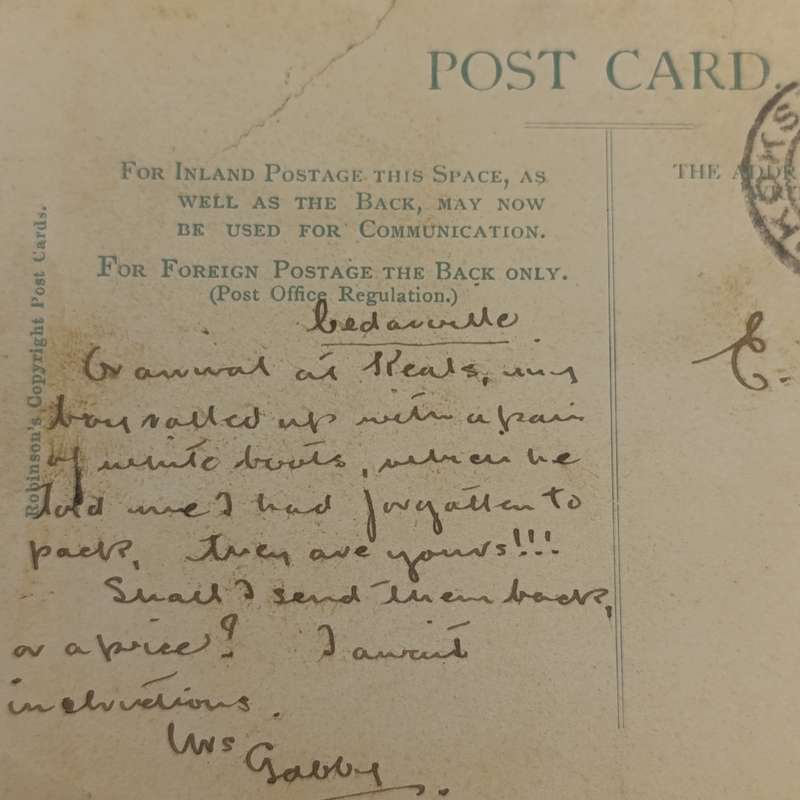 POST CARD.
FOR INLAND POSTAGE THIS SPACE, AS
WELL AS THE BACK, MAY NOW
BE USED FOR COMMUNICATION.
FOR FOREIGN POSTAGE THE BACK ONLY.
(Post Office Regulation.)
THE ADDR
Robinson's Copyright Post Cards.
Cedarville
On arrival at Keats, my
boy rolled up with a pair
of white boots, which he
told me I had forgotten to
pack, they are yours!!!
Shall I send them back,
or a price? I await
instructions.
Yrs Gabby.
E.